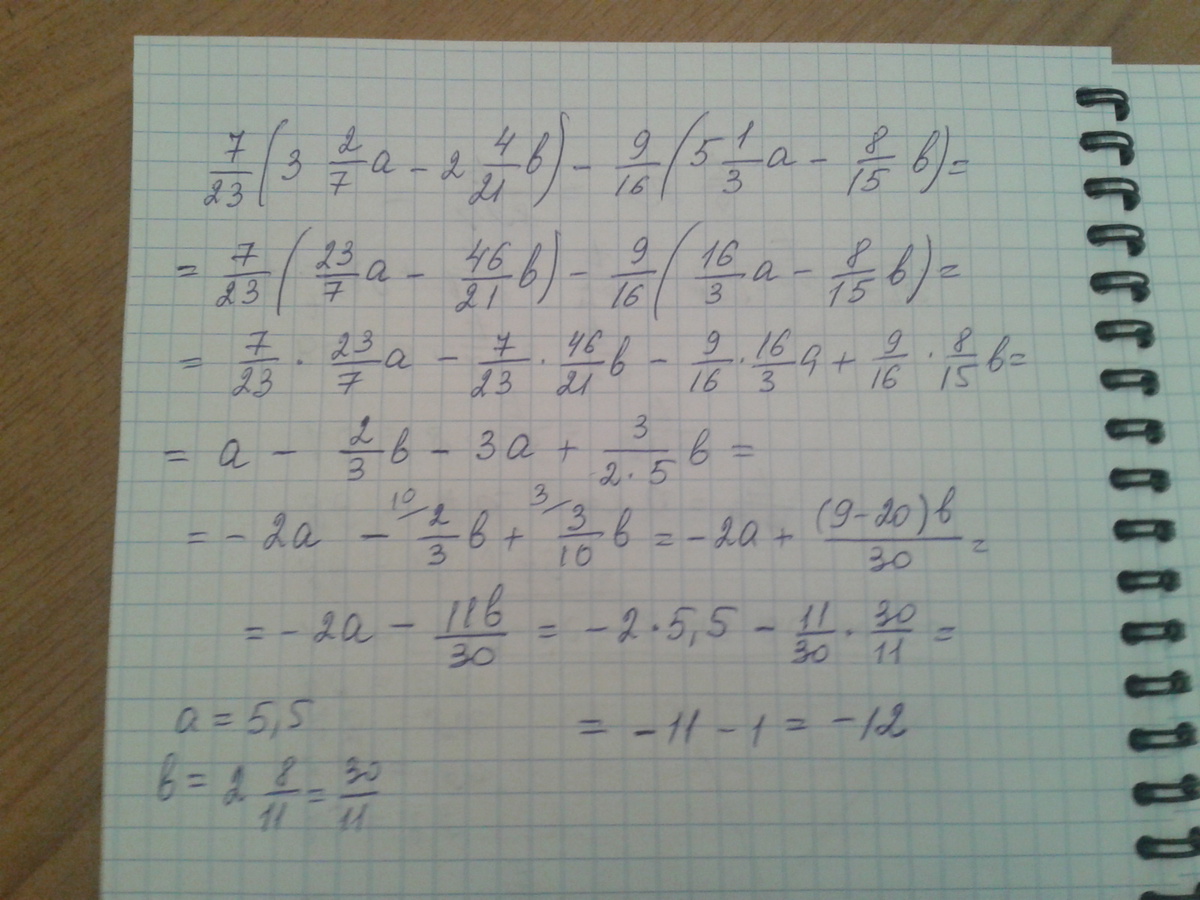 7/23 (3 2/7 a - 2 4/21 в) - 9/16 (5 1/3 a - 8/15 в) =
= 7/23 (23/7 a - 46/21 в) - 9/16 (16/3 a - 8/15 в) =
= 7/23 · 23/7 a - 7/23 · 46/21 в - 9/16 · 16/3 a + 9/16 · 8/15 в =
= a - 2/3 в - 3a + 3/(2·5) в =
= - 2a - 10/ 2/3 в + 3/ 3/10 в = - 2a + (9-20)в/30 =
= - 2a - 11в/30 = - 2 · 5,5 - 11/30 · 30/11 =
a = 5,5
= - 11 - 1 = - 12
в = 2 8/11 = 30/11